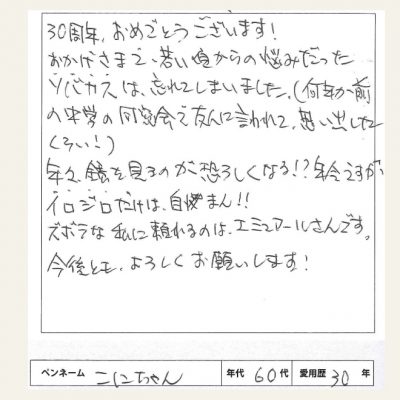 30周年、おめでとうございます!
おかげさまで、若い頃からの悩みだった
ソバカスは、忘れてしまいました。(何年か前
の中学の同窓会で友人に言われて、思い出した
くらい!)
年々、鏡を見るのが恐ろしくなる!?年令ですが、
イロジロだけは、自まん!!
ズボラな私に頼れるのは、エミュアールさんです。
今後とも、よろしくお願いします!
ペンネーム こにちゃん 年代 60代 愛用歴 30年